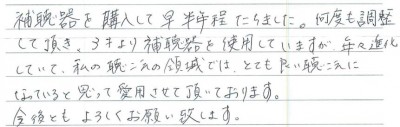 補聴器を購入して早半年程たちました。何度も調整
して頂き、3年より補聴器を使用していますが、年々進化
していて、私の聴こえの領域では、とても良い聴こえに
なっていると思って愛用させて頂いております。
今後とも よろしくお願い致します。